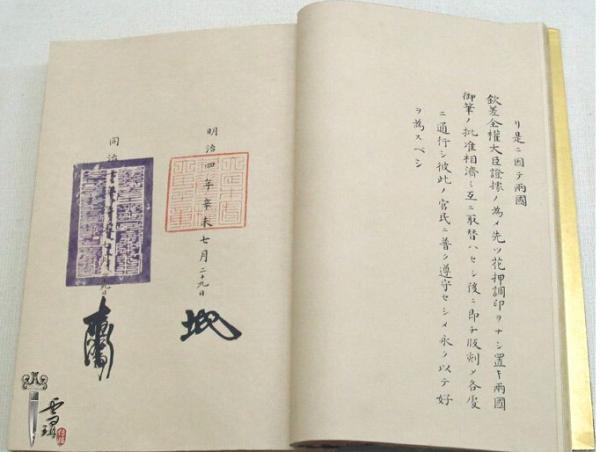 リ是ニ因テ兩國
欽差全權大臣證據ノ為メ先ツ花押調印ヲナシ置キ兩國
御筆ノ批准相濟ミ互ニ取替ハセシ後ニ即チ版刻メ各處
ニ通行シ彼此ノ官民ニ普ク遵守セシメ永ク以テ好
ヲ為スベシ
明治四年辛未七月二十九日
同治
九日